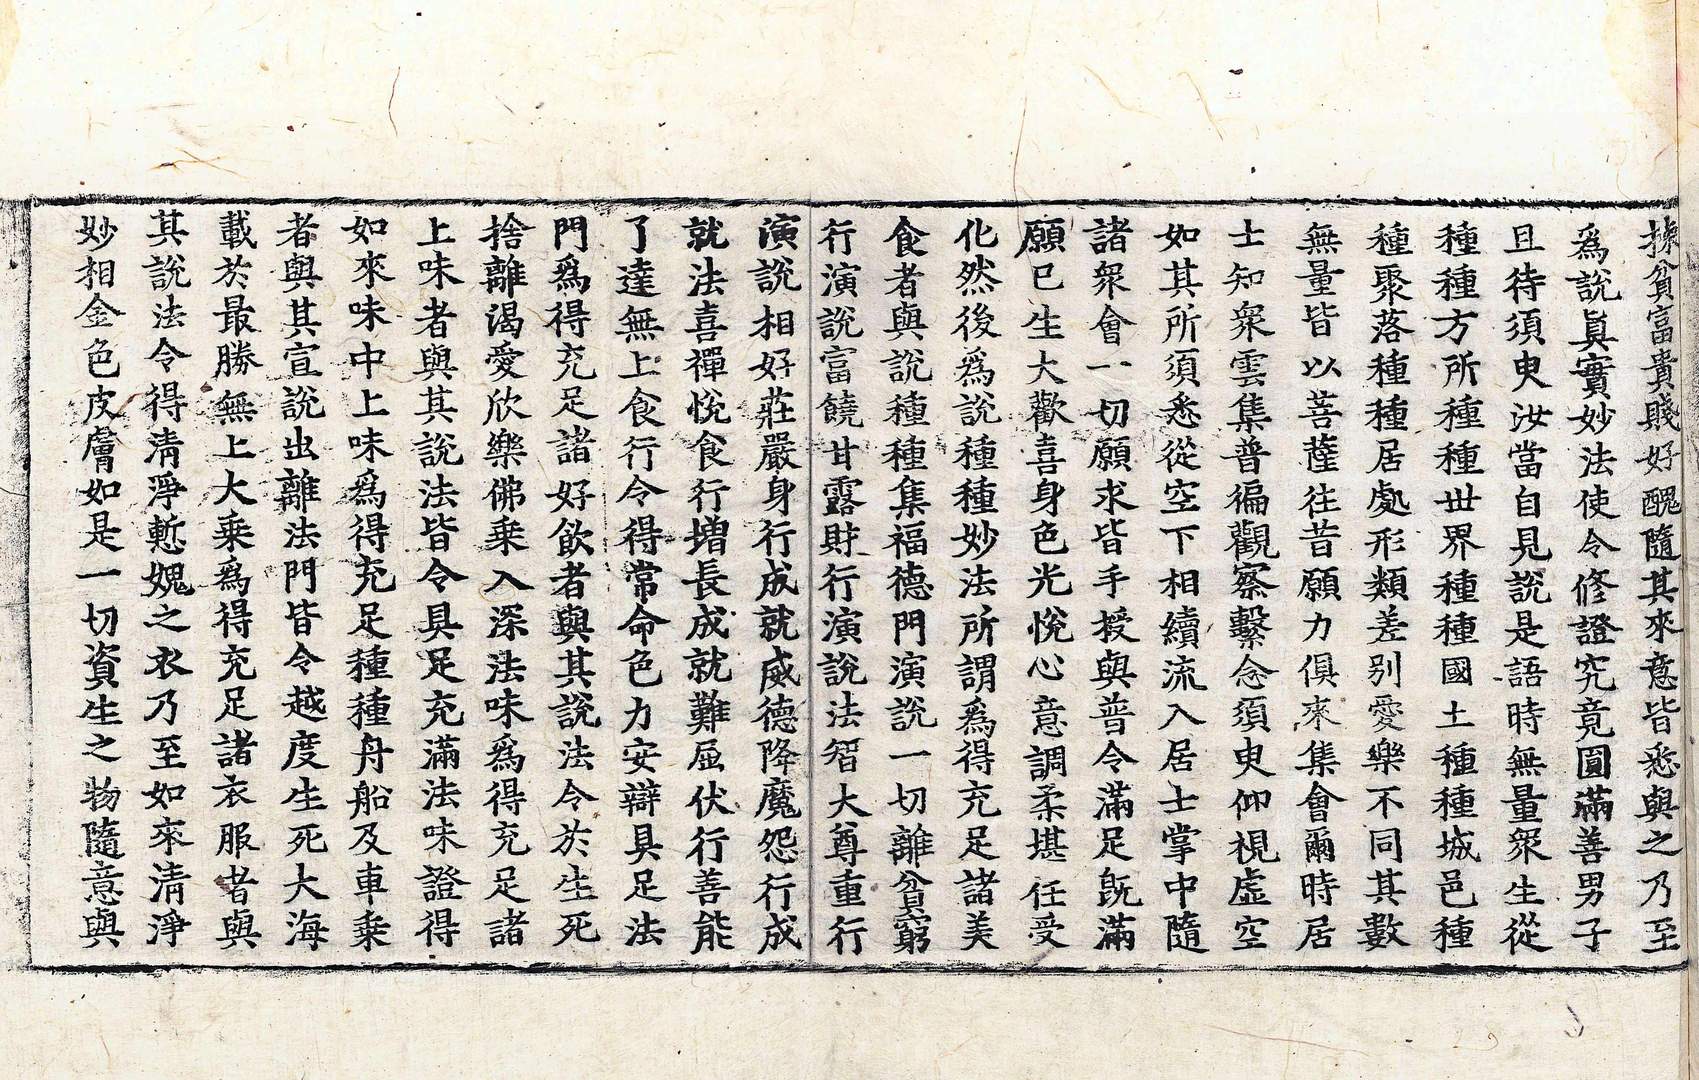 揀貧富貴賤好醜隨其來意皆悉與之乃至
爲說眞實妙法使令修證究竟圓滿善男子
且待須臾汝當自見說是語時無量衆生從
種種方所種種世界種種國土種種城邑種
種聚落種種居處形類差别愛樂不同其數
無量皆以菩薩往昔願力俱來集會爾時居
士知衆雲集普徧觀察繫念須臾仰視虛空
如其所須悉從空下相續流入居士掌中隨
諸衆會一切願求皆手授與普令滿足旣滿
願已生大歡喜身色光悅心意調柔堪任受
化然後爲說種種妙法所謂爲得充足諸美
食者與說種種集福德門演說一切離貧窮
行演說富饒甘露財行演說法智大尊重行
演說相好莊嚴身行成就威德降魔怨行成
就法喜禪悅食行增長成就難屈伏行善能
了達無上食行令得常命色力安辯具足法
門爲得充足諸好飲者與其說法令於生死
捨離渴愛欣樂佛乘入深法味爲得充足諸
上味者與其說法皆令具足充滿法味證得
如來味中上味爲得充足種種舟船及車乘
者與其宣說出離法門皆令越度生死大海
載於最勝無上大乘爲得充足諸衣服者與
其說法令得清淨慙媿之衣乃至如來清淨
妙相金色皮膚如是一切資生之物隨意與